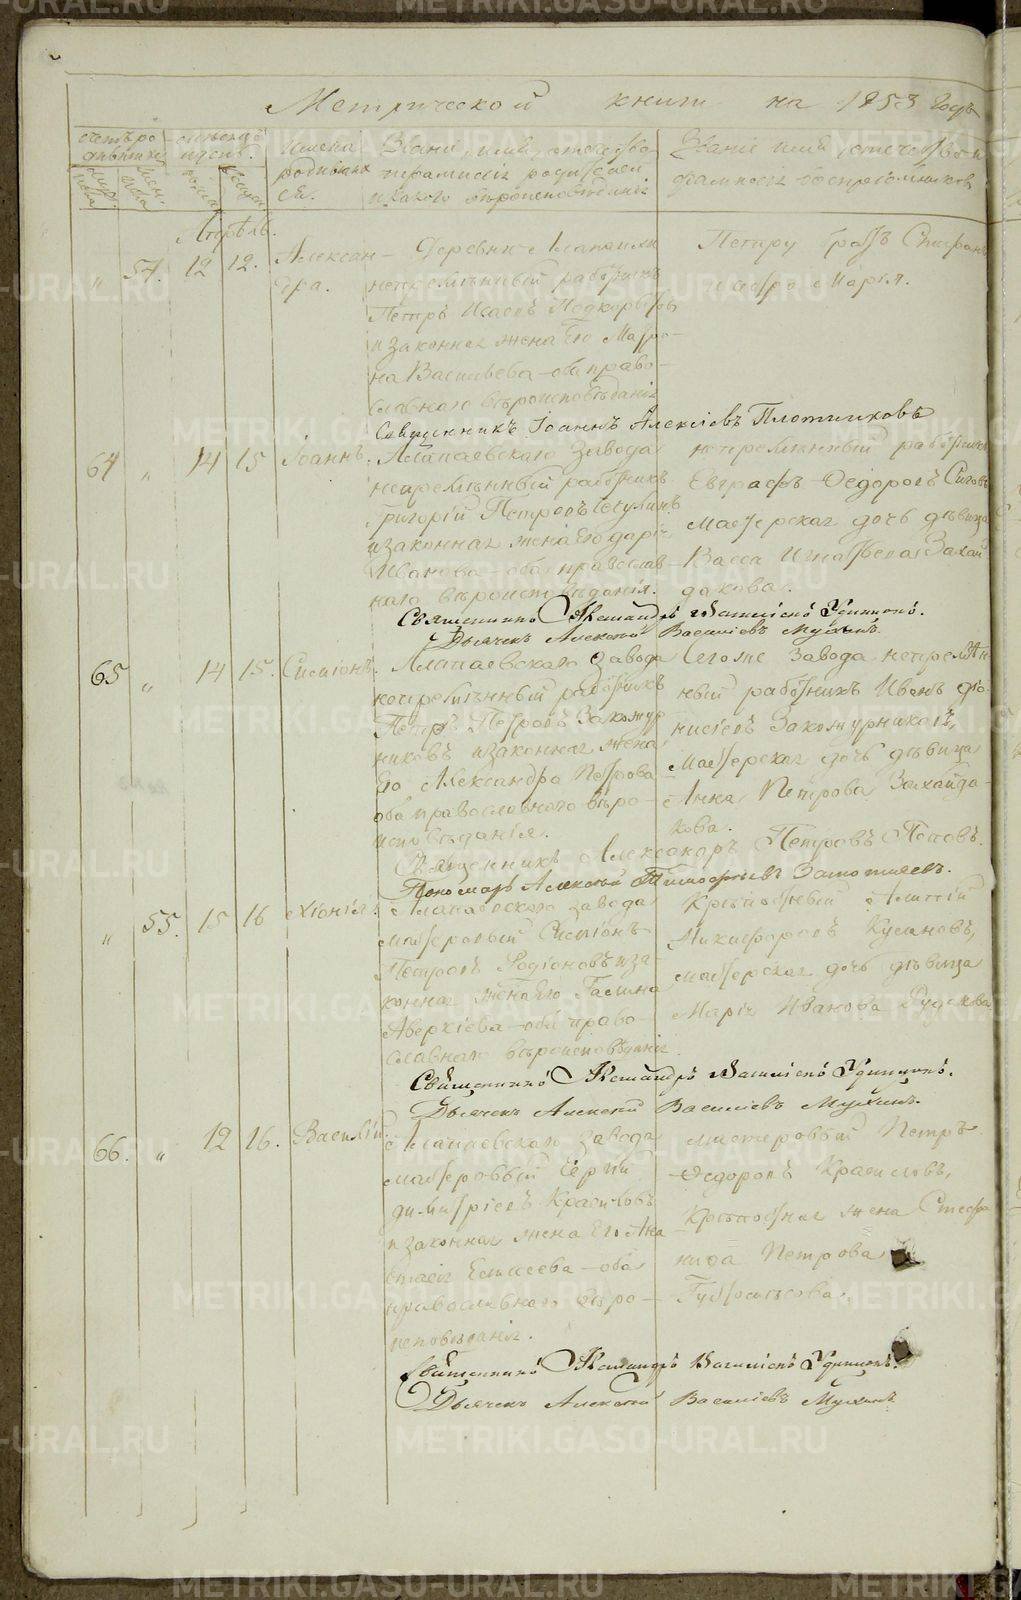 Метрической книги на 1853 годъ
счетъ родившихся
мѣсяцъ и день.
Имена родившихся.
Званіе, имя, отечество
и фамилія родителей
и какого вѣроисповѣданія
Званіе имя отечество и
фамилія воспріемниковъ
муж. пола
жен. пола
рожд.
крещен.
Апрѣль.
" 54. 12 12. Алексан-
дра.
Деревни
непремѣнный работникъ
Петръ Исаевъ
и законная жена его Матро-
на Васильева оба право-
славнаго вѣроисповѣданія
Петру братъ Стефанъ
и сестра Марія.
Священникъ Іоаннъ Алексіевъ Плотниковъ
64 " 14 15 Іоаннъ.
Алапаевскаго завода
непремѣнный работникъ
Григорій Петровъ
и законная жена его Дарія
Иванова оба православ-
наго вѣроисповѣданія.
непремѣнный работникъ
Евграфъ Ѳедоровъ
мастерская дочь дѣвица
Васса Игнатьева Захай-
дакова.
Священникъ Александръ Васильевъ Удинцовъ.
Дьячекъ Алексѣй Васильевъ Мухинъ.
65 " 14 15. Симіонъ.
Алапаевскаго завода
непремѣнный работникъ
Петръ Петровъ Закожур
никовъ и законная жена
его Александра Петрова
оба православнаго вѣро-
исповѣданія.
Тогоже завода непремѣн
ный работникъ Иванъ Діо-
нисіевъ Закожурниковъ,
мастерская дочь дѣвица
Анна Петрова Захайда-
кова.
Священникъ Александръ Петровъ Поповъ.
Пономарь Алексѣй Тимофѣевъ
" 55. 15 16 Хіонія.
Алапаевскаго завода
мастеровый Симіонъ
Петровъ Родіоновъ и за-
конная жена его Галина
Аверкіева оба право-
славнаго вѣроисповѣданія.
Крѣпостный
Никифоровъ Кусановъ,
мастерская дочь дѣвица
Марія Иванова Рудакова
Священникъ Александръ Васильевъ Удинцовъ.
Дьячекъ Алексѣй Васильевъ Мухинъ.
66. " 12 16. Василій.
Алапаевскаго завода
мастеровый Сергій
Димитріевъ Красиловъ
и законная жена его Ана
стасія Елисеева оба
православнаго вѣро-
исповѣданія.
мастеровый Петръ
Ѳедоровъ Красиловъ,
крѣпостная жена Стефа
нида Петрова
Священникъ Александръ Васильевъ Удинцовъ.
Дьячекъ Алексѣй Васильевъ Мухинъ
METRIKI.GASO-URAL.RU